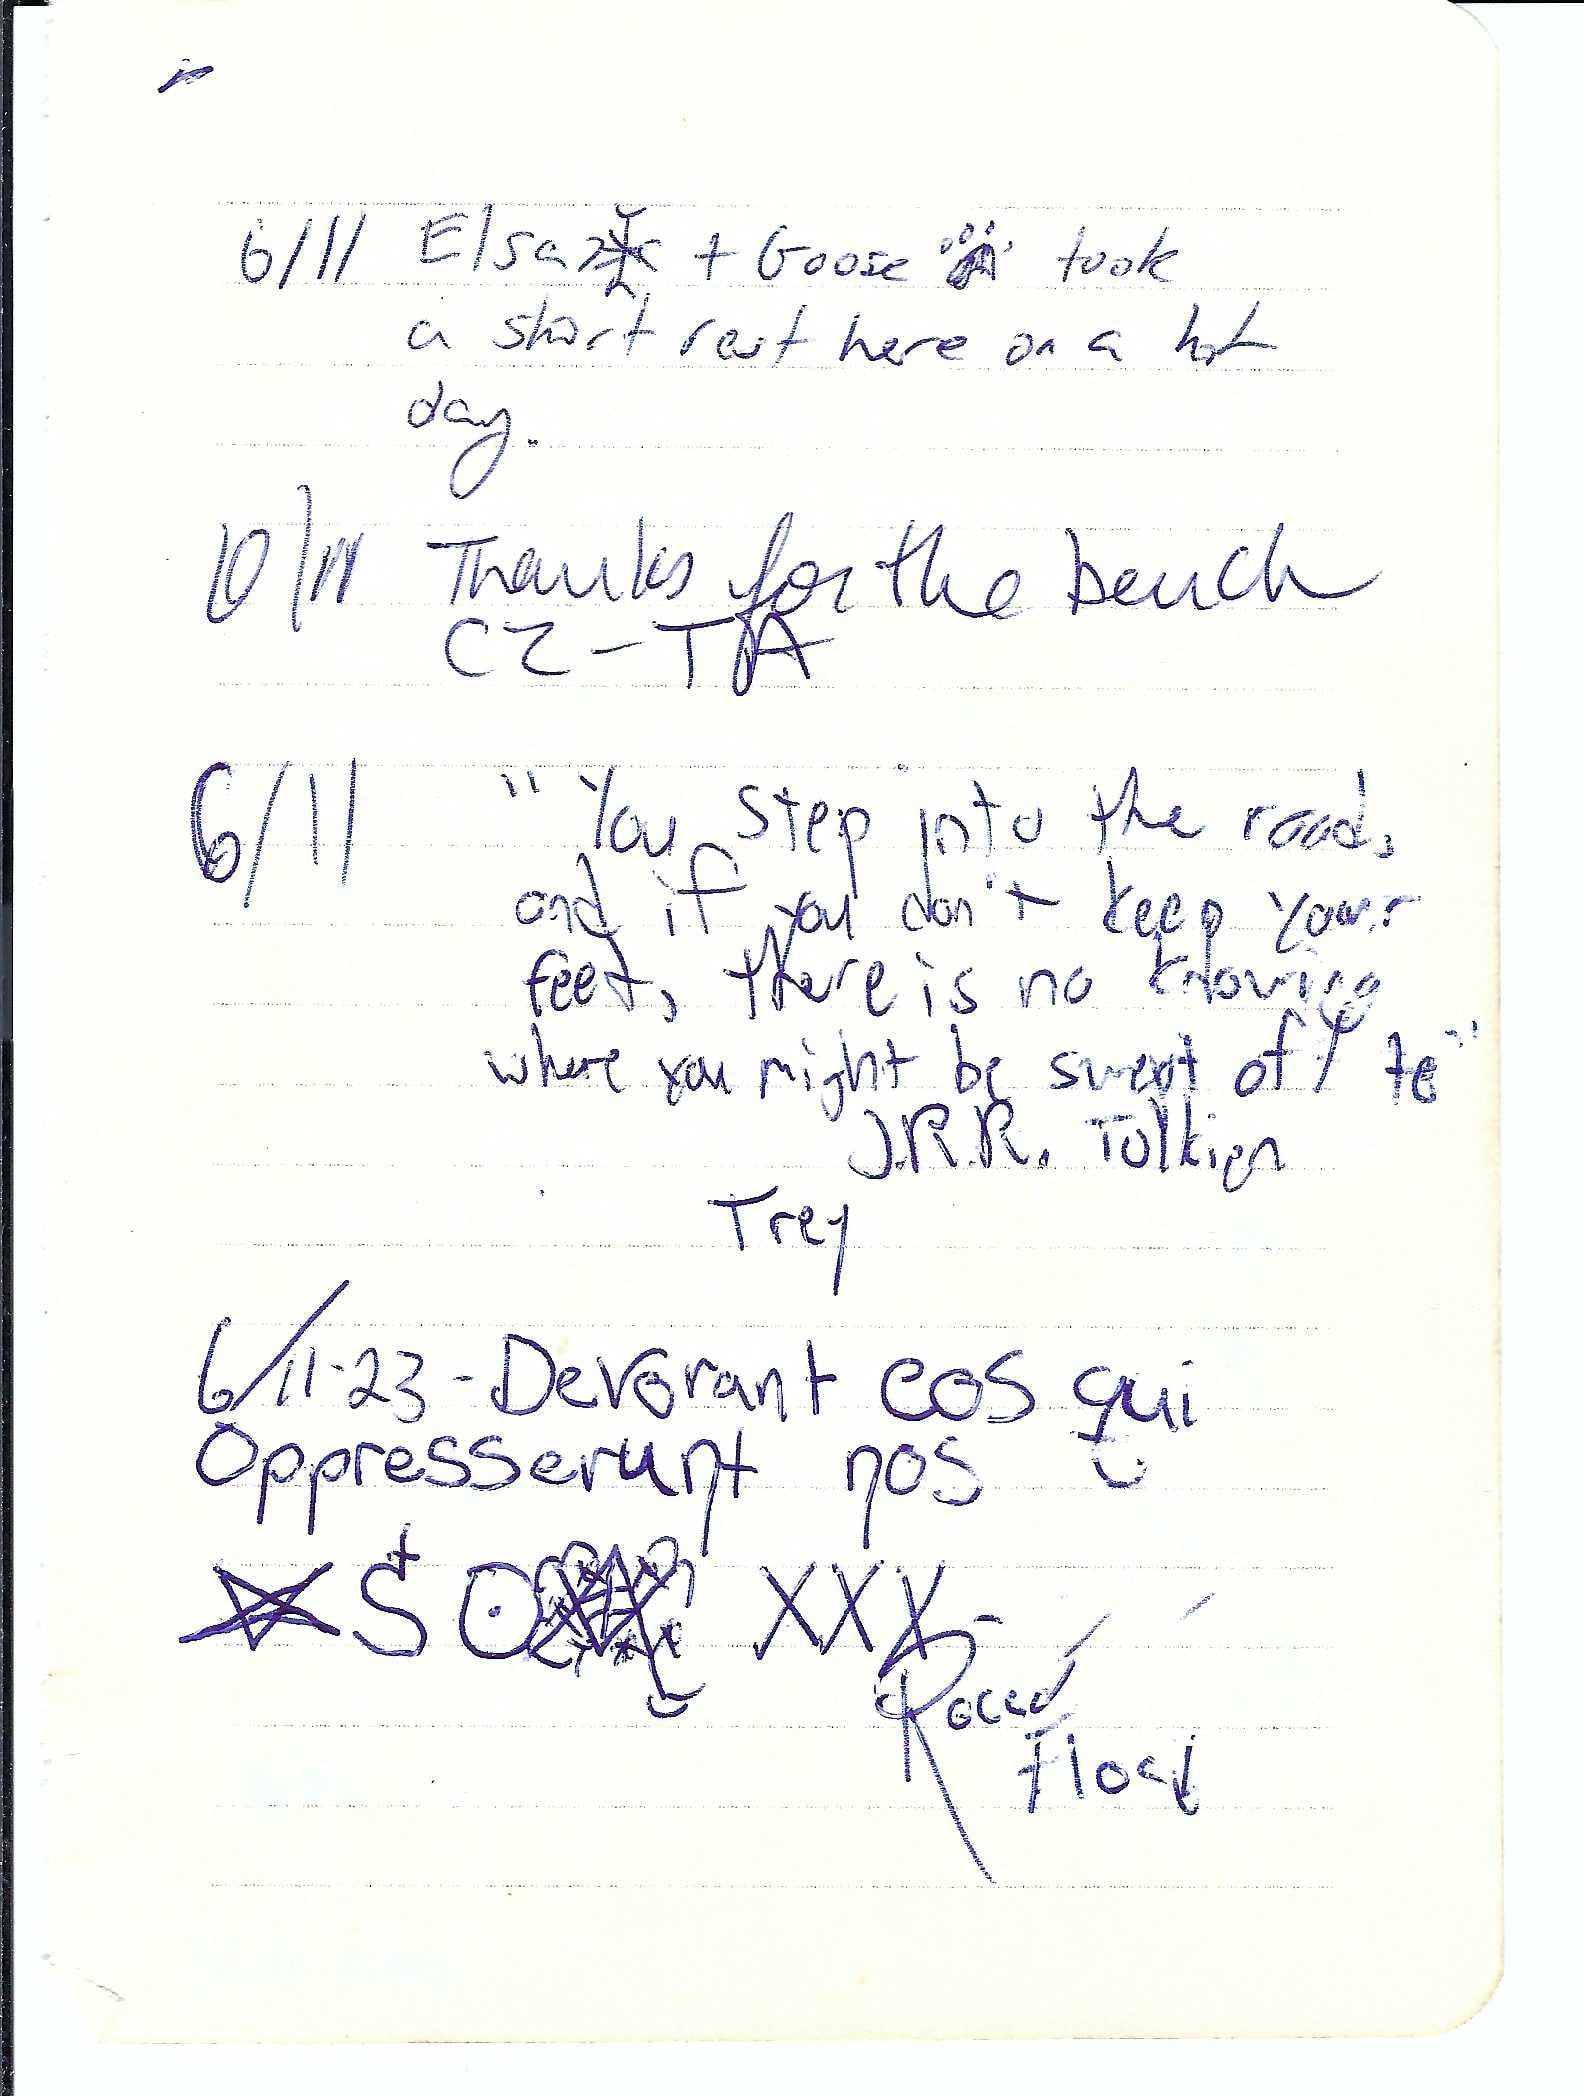 6/11 Elsa + Goose took
a short rest here on a hot
day.
10/11 Thanks for the bench
CZ-TA
6/11 "You step into the road,
and if you don't keep your
feet, there is no knowing
where you might be swept off to"
J.R.R. Tolkien
Trey
6/11-23-Devorant eos qui
Oppresserunt nos
XXX-